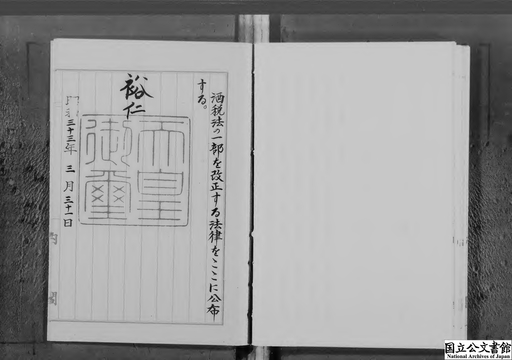 酒税法の一部を改正する法律をここに公布
する。
裕仁
天皇
御璽
昭和三十三年三月三十一日
国立公文書館
National Archives of Japan